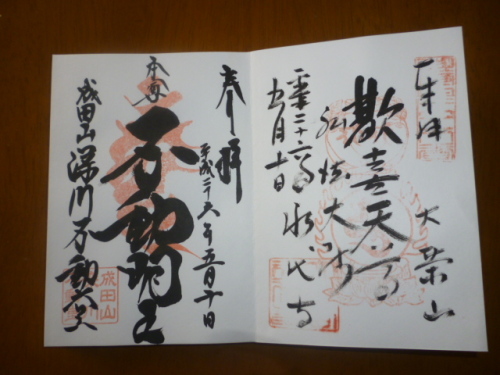 奉拝
大栄山
歓喜天
弘法大師
平成二十六年
五月十日
永代寺
奉拝
平成二十六年五月十日
本尊
不動明王
成田山深川不動堂
成田山